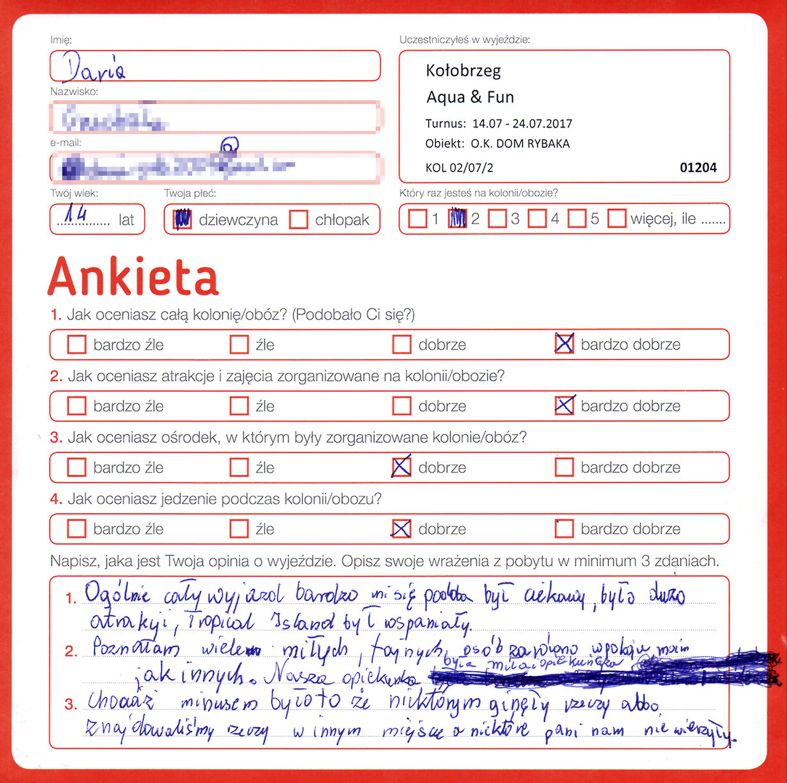 Imię:
Daria
Nazwisko:
e-mail:
@
Twój wiek:
14 lat
Twoja płeć:
dziewczyna chłopak
Uczestniczyłeś w wyjeździe:
Kołobrzeg
Aqua & Fun
Turnus: 14.07 - 24.07.2017
Obiekt: O.K. DOM RYBAKA
KOL 02/07/2 01204
Który raz jesteś na kolonii/obozie?
1 2 3 4 5 więcej, ile .......
Ankieta
1. Jak oceniasz całą kolonię/obóz? (Podobało Ci się?)
bardzo źle źle dobrze bardzo dobrze
2. Jak oceniasz atrakcje i zajęcia zorganizowane na kolonii/obozie?
bardzo źle źle dobrze bardzo dobrze
3. Jak oceniasz ośrodek, w którym były zorganizowane kolonie/obóz?
bardzo źle źle dobrze bardzo dobrze
4. Jak oceniasz jedzenie podczas kolonii/obozu?
bardzo źle źle dobrze bardzo dobrze
Napisz, jaka jest Twoja opinia o wyjeździe. Opisz swoje wrażenia z pobytu w minimum 3 zdaniach.
1. Ogólnie cały wyjazd bardzo mi się podoba był ciekawy, było dużo
atrakcji, Tropical Island był wspaniały.
2. Poznałam wiele miłych, fajnych, osób zarówno w pokoju moim
jak innych. Nasza opiekunka była miłą opiekunką
3. Chociaż minusem było to że niektórym ginęły rzeczy albo
znajdowaliśmy rzeczy w innym miejscu a niektóre pani nam nie wierzyły.